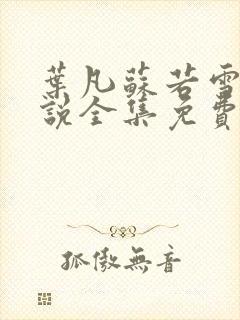 葉凡蘇若雪
說全集免費
孤傲無音